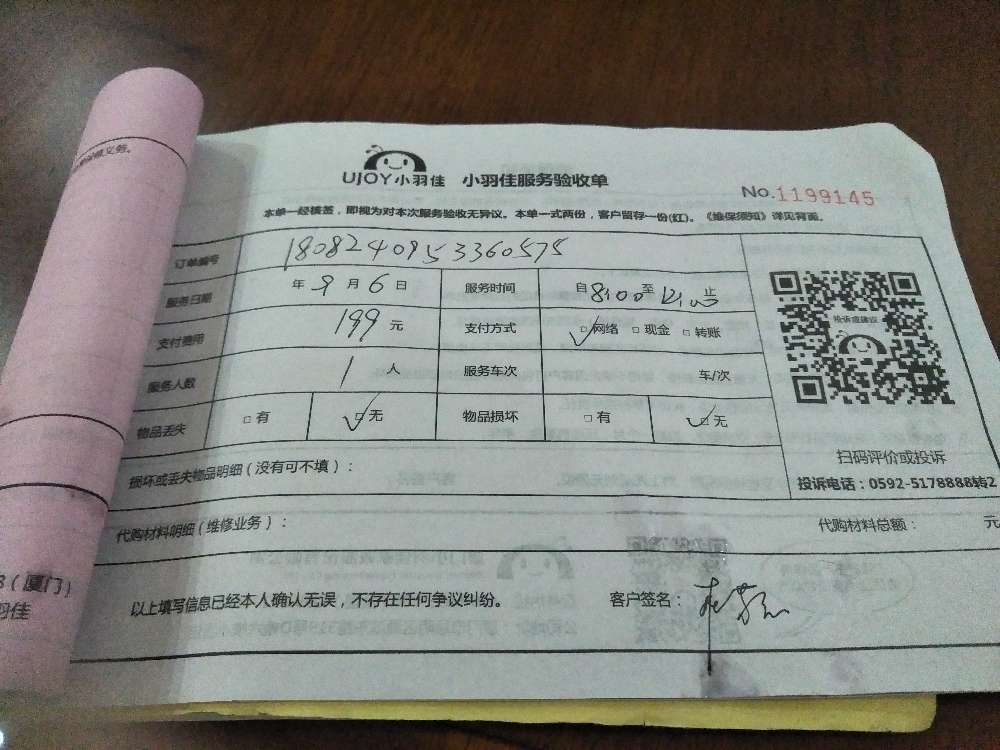 UJOY小羽佳 小羽佳服务验收单
No.1199145
本单一经核签，即视为对本次服务验收无异议。本单一式两份，客户留存一份(红)。《维保须知》详见背面。
订单编号 1808240953360575
服务日期 年 9 月 6 日 服务时间 自 8:00 至 12:00 止
支付费用 199 元 支付方式 □网络 □现金 □转账
服务人数 1 人 服务车次 车/次
物品丢失 □有 □无 物品损坏 □有 □无
投诉或建议
扫码评价或投诉
投诉电话：0592-5178888转2
损坏或丢失物品明细（没有可不填）：
代购材料明细（维修业务）： 代购材料总额： 元
以上填写信息已经本人确认无误，不存在任何争议纠纷。 客户签名：
义务。
（厦门）
羽佳